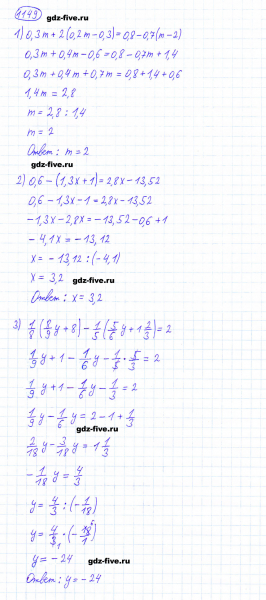 1149 gdz-five.ru
1) 0,3m + 2(0,2m - 0,3) = 0,8 - 0,7(m - 2)
0,3m + 0,4m - 0,6 = 0,8 - 0,7m + 1,4
0,3m + 0,4m + 0,7m = 0,8 + 1,4 + 0,6
1,4m = 2,8
m = 2,8 : 1,4
m = 2
Ответ: m = 2
gdz-five.ru
2) 0,6 - (1,3x + 1) = 2,8x - 13,52
0,6 - 1,3x - 1 = 2,8x - 13,52
-1,3x - 2,8x = -13,52 - 0,6 + 1
-4,1x = -13,12
x = -13,12 : (-4,1)
x = 3,2 gdz-five.ru
Ответ: x = 3,2
3) 1/8 (8/9 y + 8) - 1/5 (5/6 y + 1 2/3) = 2
1/9 y + 1 - 1/6 y - 1/5 · 5/3 = 2
1/9 y + 1 - 1/6 y - 1/3 = 2
1/9 y - 1/6 y = 2 - 1 + 1/3
gdz-five.ru
2/13 y - 3/18 y = 1 1/3
- 1/18 y = 4/3
y = 4/3 : (- 1/18)
y = 4/3 1 · (- 18 6/1)
y = -24 gdz-five.ru
Ответ: y = -24